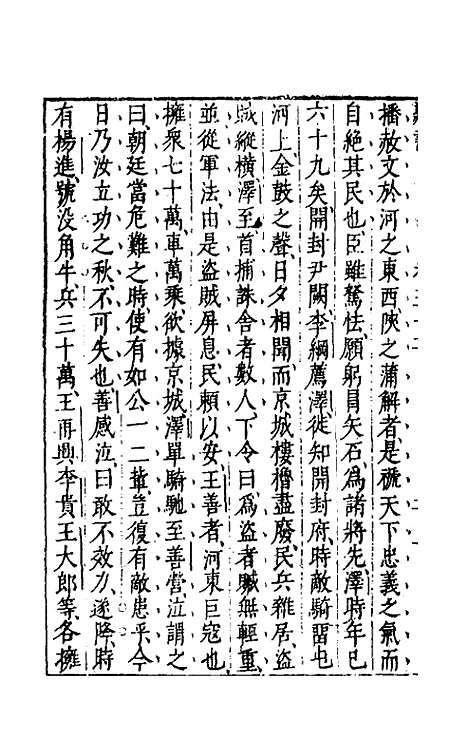 播赦文於河之東西陝之蒲解者是褫天下忠義之氣而
自絕其民也臣雖駑怯願躬冐矢石爲諸將先澤時年已
六十九矣開封尹闕李綱薦澤徙知開封府時敵騎畱屯
河上金鼓之聲日夕相聞而京城樓櫓盡廢民兵雜居盜
賊縱橫澤至首捕誅舍者數人下令曰爲盜者贓無輕重
並從軍法由是盜賊屏息民賴以安王善者河東巨寇也
擁衆七十萬車萬乘欲據京城澤單騎馳至善營泣謂之
曰朝廷當危難之時使有如公一二輩豈復有敵患乎今
日乃汝立功之秋不可失也善感泣曰敢不效力遂降時
有楊進號没角牛兵三十萬王再興李貴王大郎等各擁